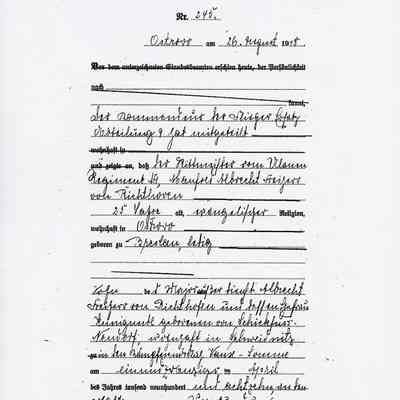 Nr. 245.
Ostrowo am 26. August 1918.
Vor dem unterzeichneten Standesbeamten erschien heute, der Persönlichkeit
nach
kannt,
Der Kommandeur der Flieger Ersatz
Abteilung 9 hat mitgeteilt
wohnhaft in
und zeigte an, daß der Rittmeister vom Ulanen
Regiment №1, Manfred Albrecht Freiherr
von Richthoven
25 Jahre alt, evangelischer Religion,
wohnhaft in Ostrowo
geboren zu Breslau, ledig
Sohn des Major außer Dienst Albrecht
Freiherr von Richthofen und dessen Ehefrau
Kunigunde geborenen von Schickfus-
Neudorf, wohnhaft in Schweidnitz
zu in den Kämpfen Vaux-Somme
am einundzwanzigsten April
des Jahres tausend neunhundert und achtzehn